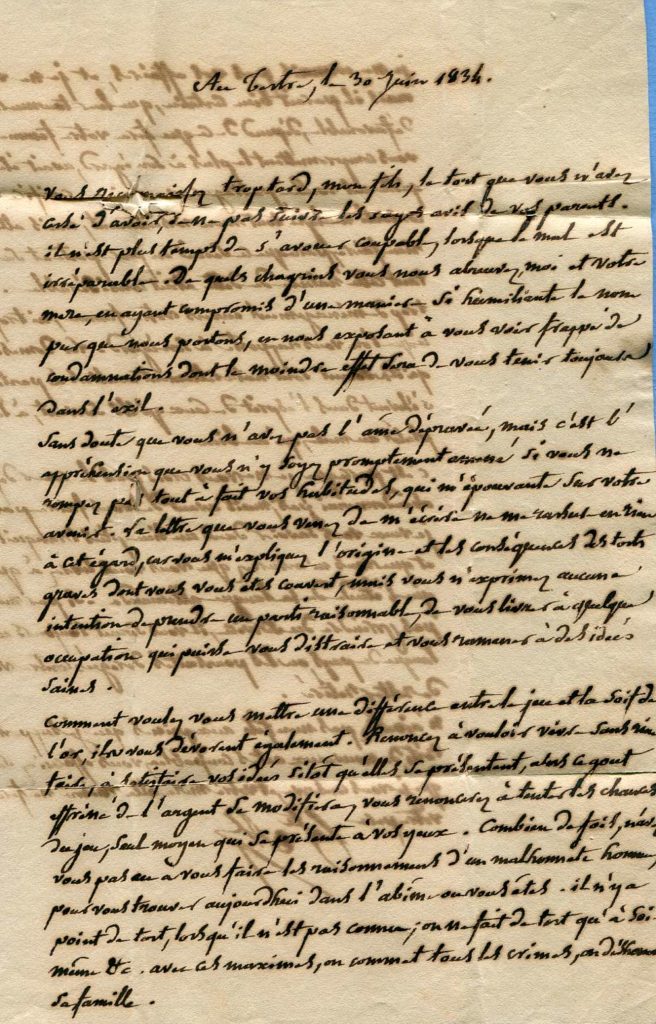 Au Tertre, le 30 Juin 1834.
Vous reconnaissez trop tard, mon fils, le tort que vous n'avez
cessé d'avoir, de ne pas suivre les sages avis de vos parents.
il n'est plus temps de s'avouer coupable, lorsque le mal est
irréparable. De quels chagrins vous nous abreuvez, moi et votre
mere, en ayant compromis d'une maniere si humiliante le nom
pur que nous portons, en nous exposant à vous voir frappé de
condamnations dont le moindre effet sera de vous tenir toujours
dans l'exil.
Sans doute que vous n'avez pas l'ame dépravée, mais c'est l'
appréhension que vous n'y soyez promptement amené si vous ne
rompez pas tout à fait vos habitudes, qui m'épouvante sur votre
avenir. La lettre que vous venez de m'écrire ne me rassure en rien
à cet égard, car vous m'expliquez l'origine et les conséquences des torts
graves dont vous vous etes couvert, mais vous n'exprimez aucune
intention de prendre un parti raisonnable, de vous livrer à quelque
occupation qui puisse vous distraire et vous ramener à des idées
saines.
Comment voulez vous mettre une différence entre le jeu et la soif de
l'or, ils vous dévorent également. Renoncez à vouloir vivre sans rien
faire, à satisfaire vos idées sitot qu'elles se présentent, alors ce gout
effréné de l'argent se modifiera, vous renoncerez à tenter les chances
du jeu, seul moyen qui se présente à vos yeux. Combien de fois, n'avez
vous pas eu à vous faire les raisonnements d'un malhonnete homme,
pour vous trouver aujourdhui dans l'abime ou vous étes. il n'y a
point de tort, lorsqu'il n'est pas connu; on ne fait de tort qu'à soi-
même &c. avec ces maximes, on commet tous les crimes, on déshonore
sa famille.